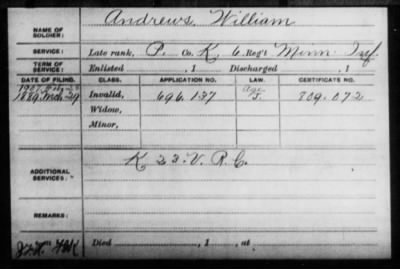 NAME OF SOLDIER: Andrews, William
SERVICE: Late rank, P. Co. K, 6 Reg't Minn Inf.
TERM OF SERVICE: Enlisted , 1 Discharged , 1
DATE OF FILING. CLASS. APPLICATION NO. LAW. CERTIFICATE NO.
1907
1889 Mch 29 Invalid, 696.137 Age J. 809.072
Widow,
Minor,
ADDITIONAL SERVICES: K 23. V. R. C.
REMARKS:
Died , 1 , at